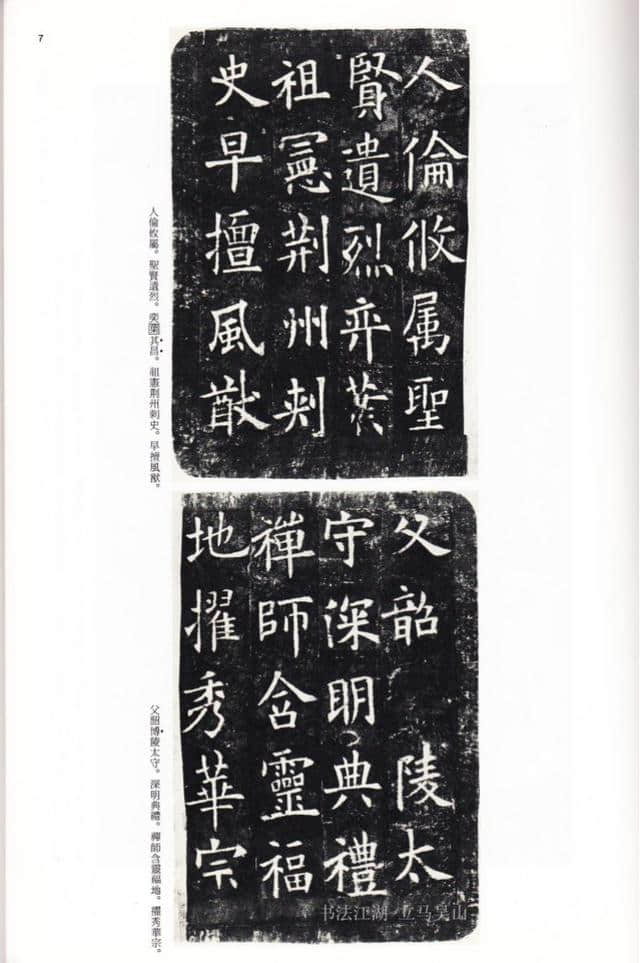 7
人倫攸属聖
賢遺烈弈葉
祖憲荆州刾
史早擅風猷
人倫攸屬。聖賢遺烈。奕葉其昌。祖憲荆州刺史。早擅風猷。
父韶 陵太
守深明典禮
禪師含靈福
地擢秀華宗
父韶博陵太守。深明典禮。禪師含靈福地。擢秀華宗。
书法江湖 立马吴山